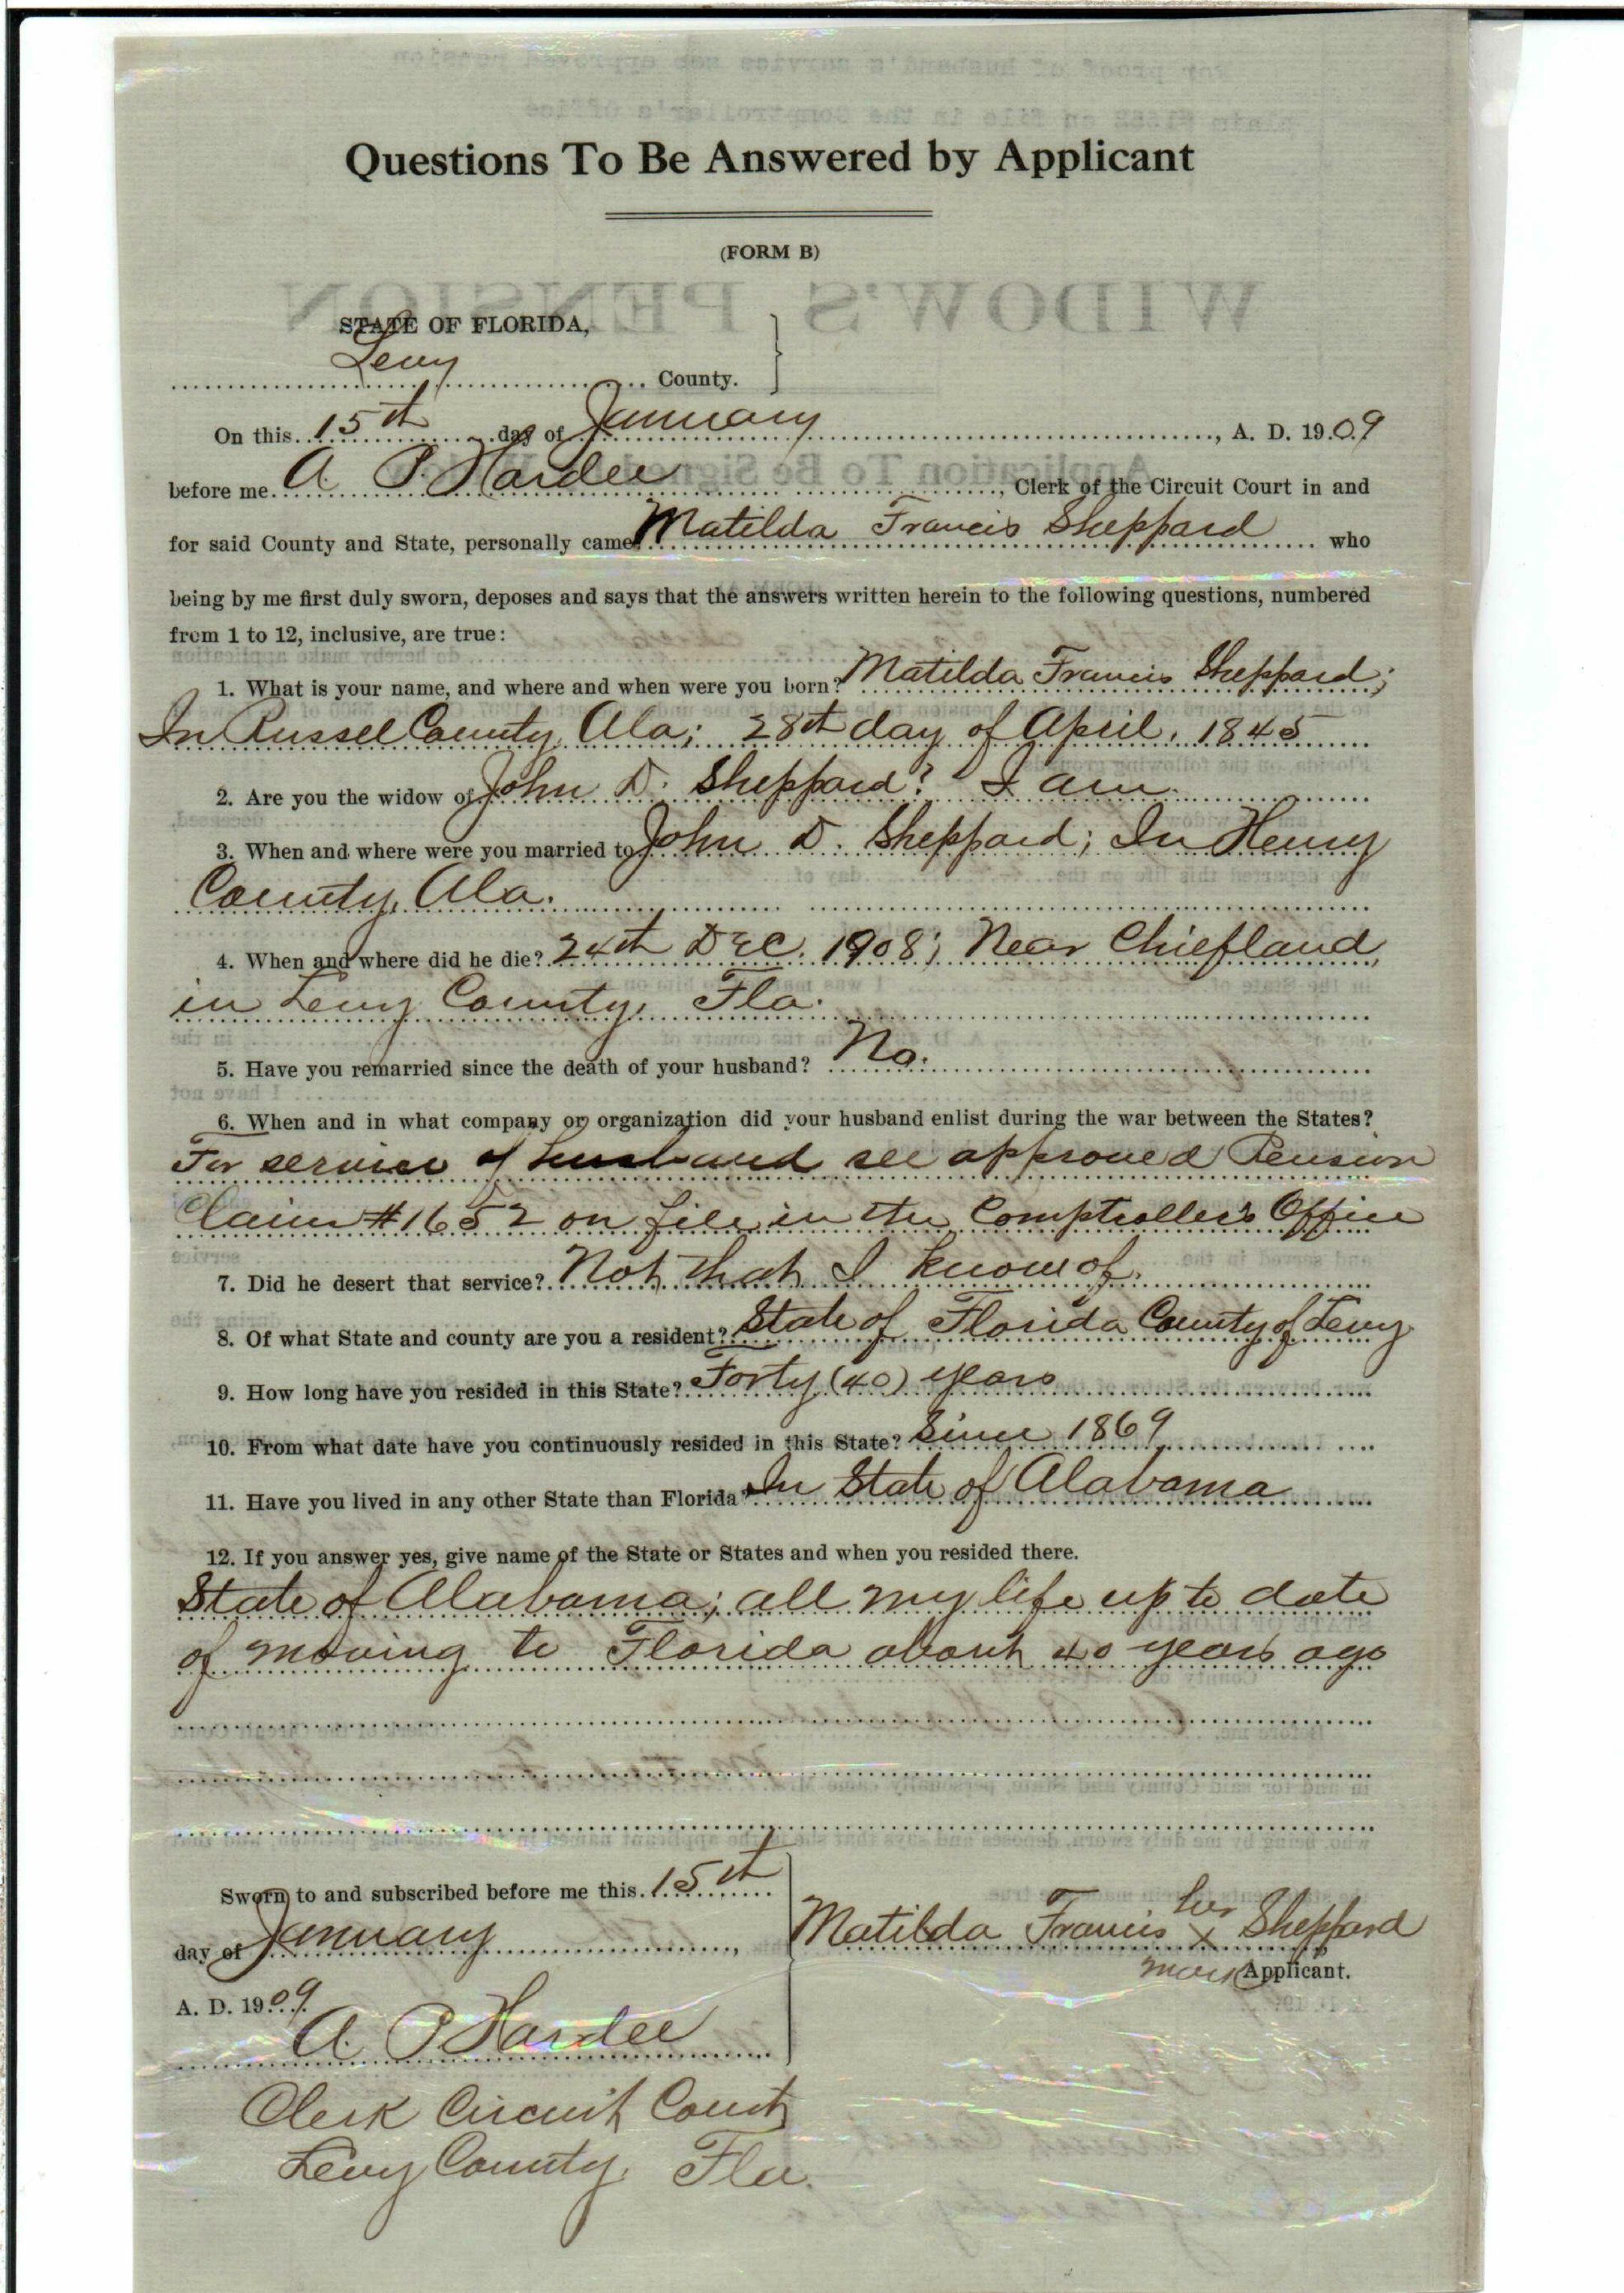 Questions To Be Answered by Applicant
(FORM B)
STATE OF FLORIDA,
Levy County.
On this 15th day of January, A. D. 1909
before me A. P. Hardee, Clerk of the Circuit Court in and
for said County and State, personally came Matilda Francis Sheppard who
being by me first duly sworn, deposes and says that the answers written herein to the following questions, numbered
from 1 to 12, inclusive, are true:
1. What is your name, and where and when were you born? Matilda Francis Sheppard;
In Russel County, Ala; 28th day of April, 1845
2. Are you the widow of John D. Sheppard? I am.
3. When and where were you married to John D. Sheppard; In Henry
County, Ala.
4. When and where did he die? 24th DEC. 1908; Near Chiefland,
in Levy County, Fla.
5. Have you remarried since the death of your husband? No.
6. When and in what company or organization did your husband enlist during the war between the States?
For service of husband see approved Pension
Claim #1652 on file in the Comptroller's Office
7. Did he desert that service? Not that I know of.
8. Of what State and county are you a resident? State of Florida County of Levy
9. How long have you resided in this State? Forty (40) years
10. From what date have you continuously resided in this State? Since 1869
11. Have you lived in any other State than Florida? In State of Alabama
12. If you answer yes, give name of the State or States and when you resided there.
State of Alabama; all my life up to date
of moving to Florida about 40 years ago
Sworn to and subscribed before me this 15th
day of January,
A. D. 1909
A. P. Hardee
Clerk Circuit Court
Levy County, Fla.
her
Matilda Francis X Sheppard
mark Applicant.